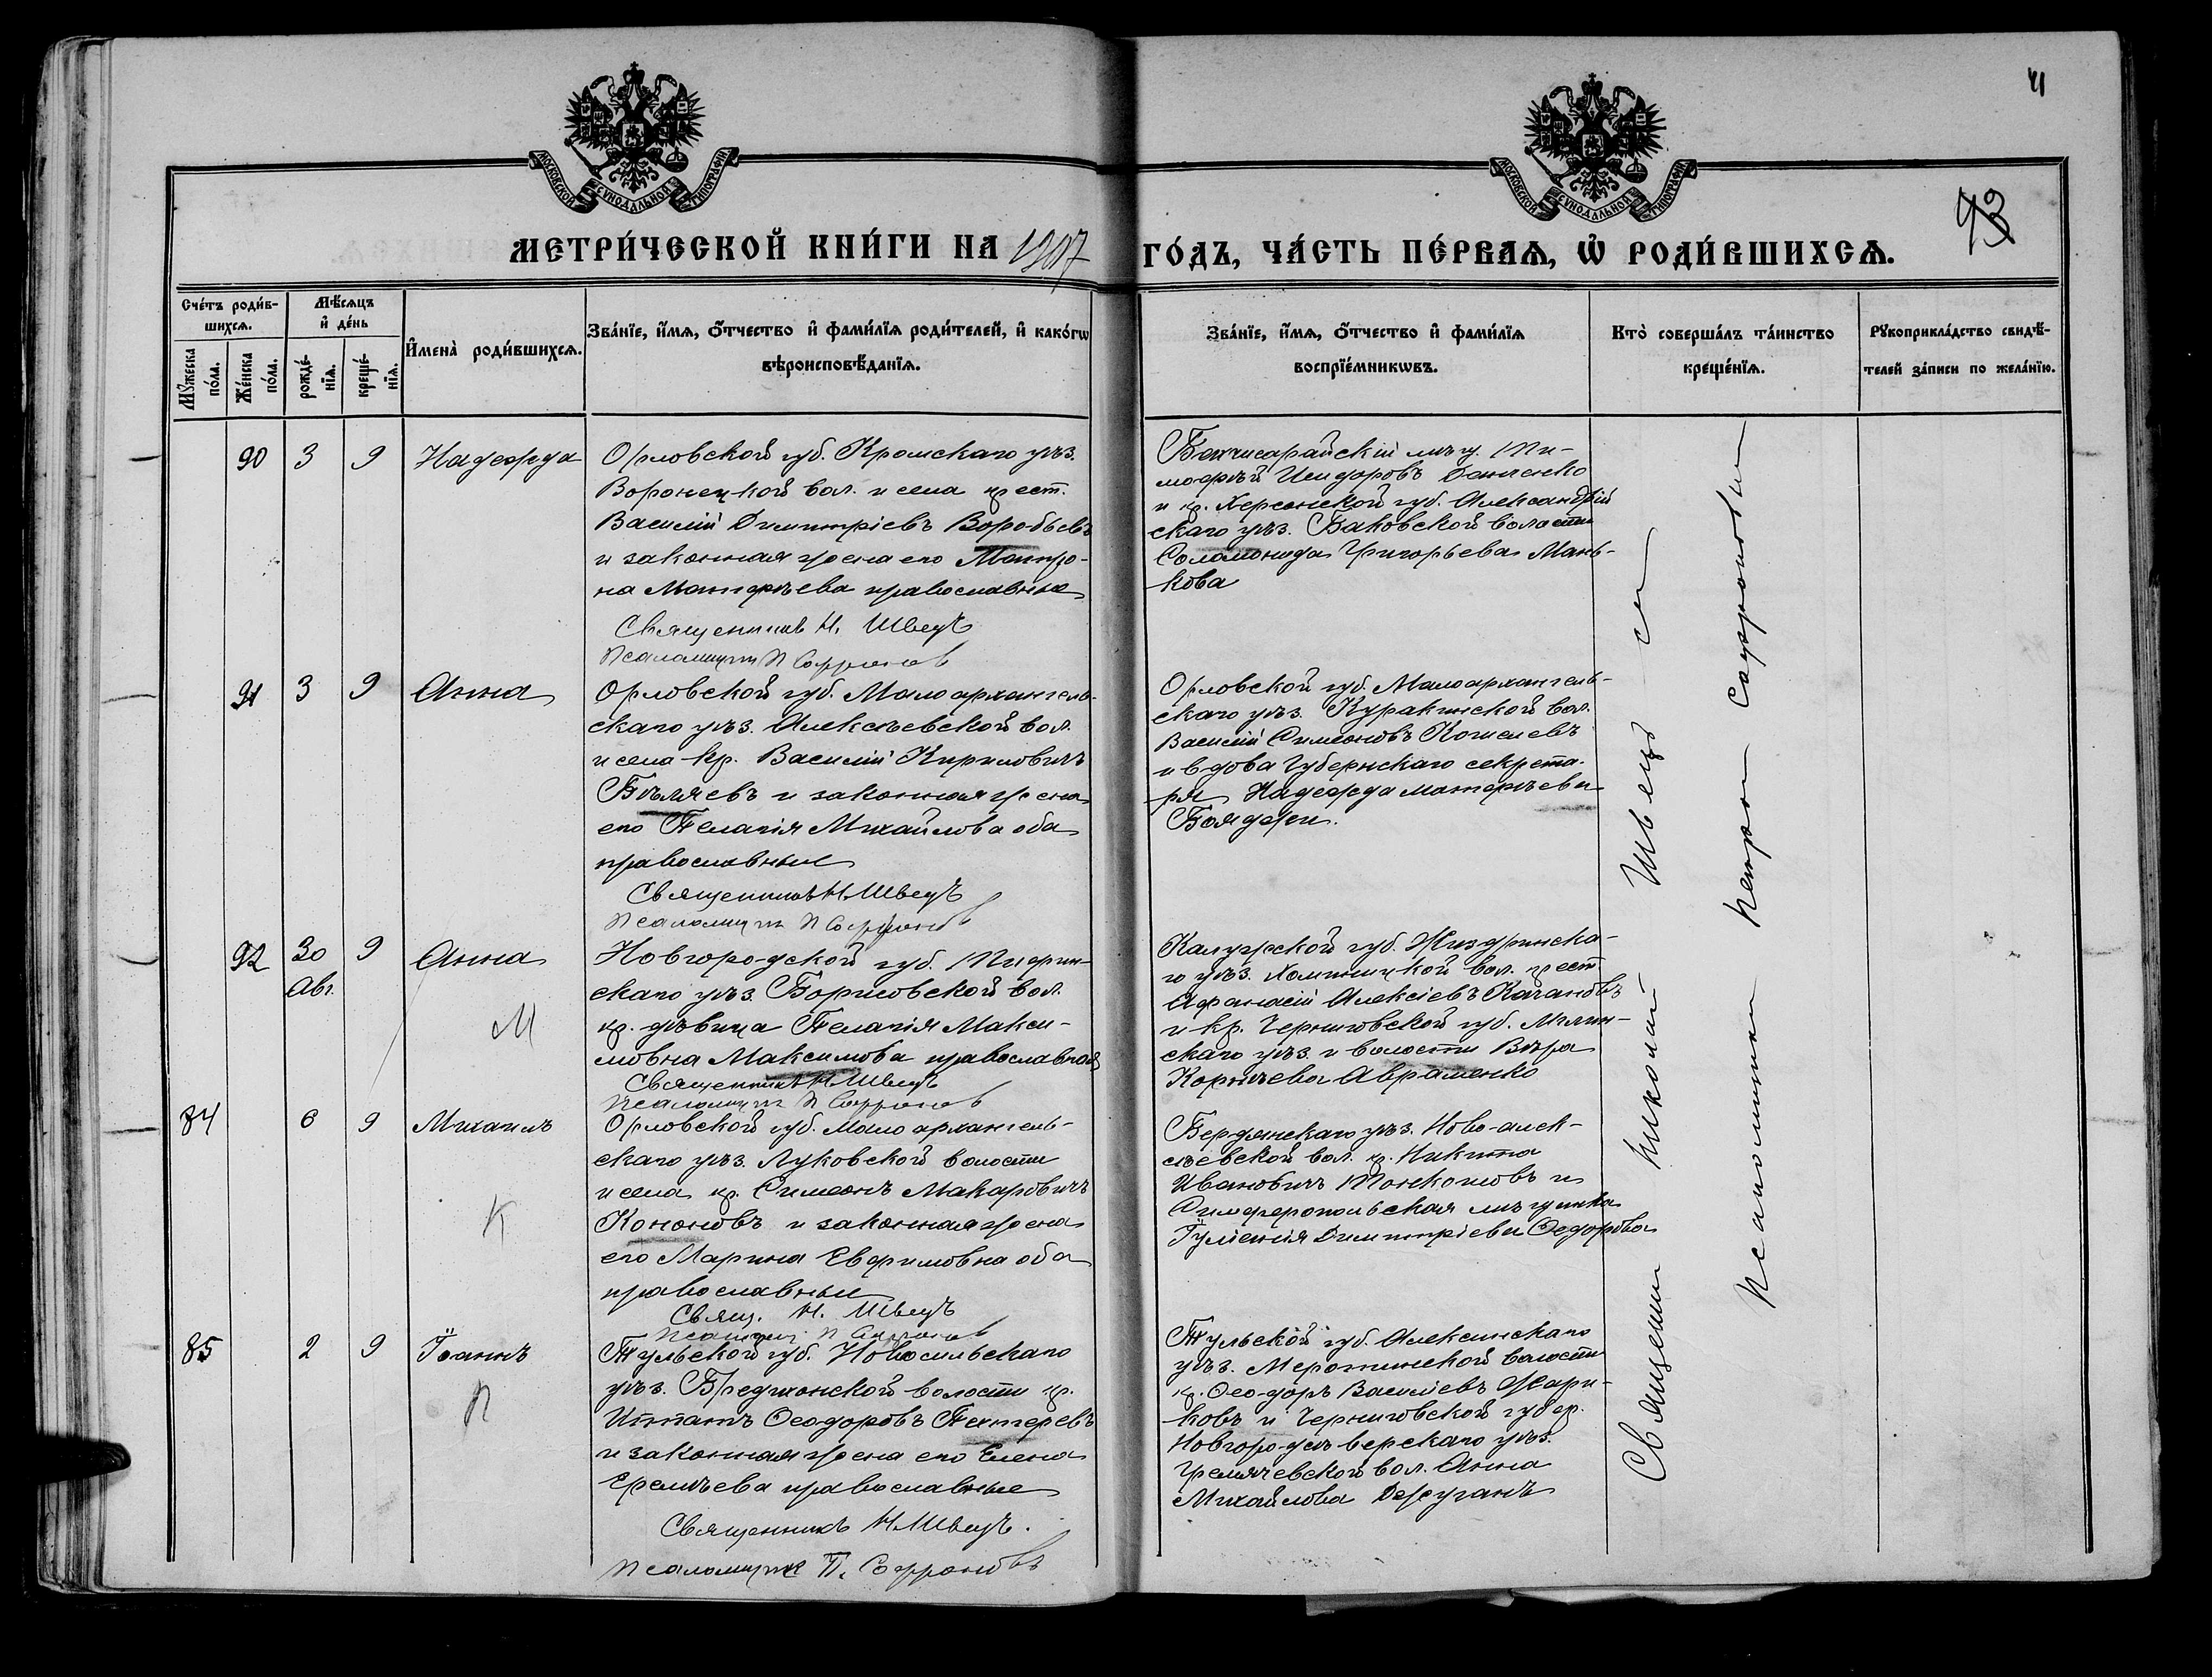 41
43
МОСКОВСКОЙ СѴНОДАЛЬНОЙ ТИПОГРАФІИ
МОСКОВСКОЙ СѴНОДАЛЬНОЙ ТИПОГРАФІИ
МЕТРИ́ЧЕСКОЙ КНИ́ГИ НА 1907 ГО́ДЪ, ЧА́СТЬ ПЕ́РВАѦ, Ѽ РОДИ́ВШИХСѦ.
Сче́тъ роди́в-
шихсѧ.
Мꙋ́жеска по́ла.
Же́нска по́ла.
Мѣ́сѧцъ
и҆ де́нь
рожде́-
нїѧ.
креще́-
нїѧ.
И҆мена̀ роди́вшихсѧ.
Зва́нїе, и҆́мѧ, ѻ҆́тчество и҆ фами́лїѧ роди́телей, и҆ како́гѡ
вѣроисповѣ́данїѧ.
Зва́нїе, и҆́мѧ, ѻ҆́тчество и҆ фами́лїѧ
воспрїе́мникѡвъ.
Кто̀ соверша́лъ та́инство
креще́нїѧ.
Рꙋкоприкла́дство свидѣ́-
телей за́писи по жела́нїю.
90 3 9 Надежда
Орловской губ. Кромскаго уѣз.
Воронецкой вол. и села крест.
Василій Димитріевъ Воробьевъ
и законная жена его Матро-
на Матфѣева православные
Священникъ Н. Швецъ
Псаломщик П Софронов
Бахчисарайскій мѣщ. Ти-
мофѣй Исидоровъ Даниенко
и кр. Херсонской губ. Александрій
скаго уѣз. Баковской волости
Соломонида Григорьева Мань-
кова
91 3 9 Анна
Орловской губ. Малоархангель-
скаго уѣз. Алексѣевской вол.
и села кр. Василій Кириловичъ
Бѣляевъ и законная жена
его Пелагія Михайлова оба
православные
Священникъ Н. Швецъ
Псаломщик П Софронов
Орловской губ. Малоархангель-
скаго уѣз. Куракинской вол.
Василій Симеоновъ Кошелевъ
и вдова Губернскаго секрета-
ря Надежда Матфѣева
Бояджи.
92 30 9 Анна
Авг.
М
Новгородской губ. Тихвин-
скаго уѣз. Борисовской вол.
кр. дѣвица Пелагія Макси-
мовна Максимова православная
Священникъ Н. Швецъ
Псаломщик П Софронов
Калужской губ. Жиздринска-
го уѣз. вол. крест.
Афанасій Алексіевъ Качановъ
и кр. Черниговской губ. Мглин-
скаго уѣз. и волости Вѣра
Корнѣева Авраменко
84 6 9 Михаилъ
К
Орловской губ. Малоархангель-
скаго уѣз. Луковской волости
и села кр. Симеонъ Макаровичъ
Кононовъ и законная жена
его Марина Евфимовна оба
православные
Свящ. Н. Швецъ
Псаломщ. П Софронов
Бердянскаго уѣз. Ново-алек-
сѣевской вол. кр. Никита
Ивановичъ Тонконоговъ и
Симферопольская мѣщанка
Іуліанія Димитріева Ѳедорова
85 2 9 Іоаннъ
П
Тульской губ. Новосильскаго
уѣз. Бредихонской волости кр.
Ипатъ Ѳеодоровъ Пехтеревъ
и законная жена его Елена
Еремѣева православные
Священникъ Н. Швецъ.
Псаломщик П. Софроновъ
Тульской губ. Алексинскаго
уѣз. волости
кр. Ѳеодоръ Василіевъ Жари-
ковъ и Черниговской губер.
Новгородсѣверскаго уѣз.
Гремячевской вол. Анна
Михайлова Держуганъ
Священник Николай Швецъ съ
псаломщиком Петром Софроновым